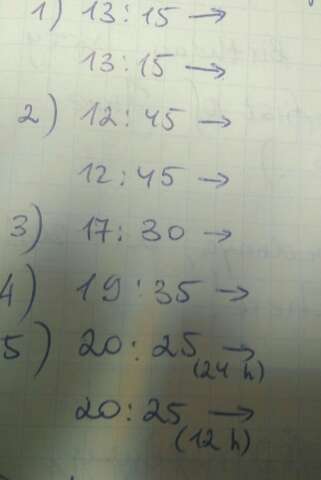 1) 13:15 →
13:15 →
2) 12:45 →
12:45 →
3) 17:30 →
4) 19:35 →
5) 20:25 →
(24 h)
20:25 →
(12 h)